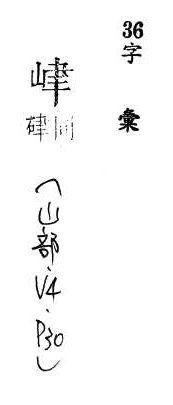 36字彙
峍
硉同
(山部·V4·P30)